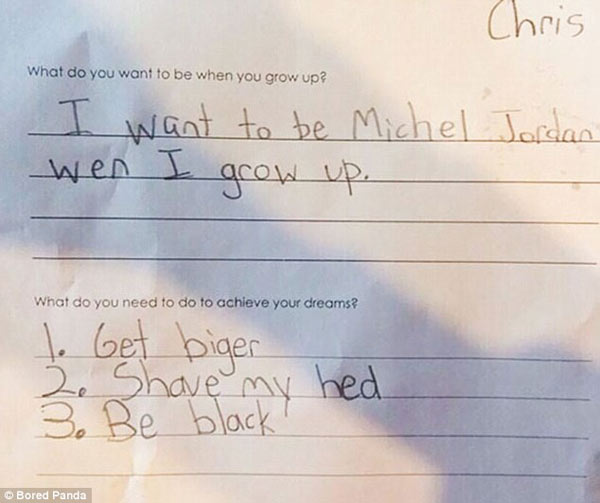 Chris
What do you want to be when you grow up?
I want to be Michel Jordan
wen I grow up.
What do you need to do to achieve your dreams?
1. Get biger
2. Shave my hed
3. Be black
© Bored Panda